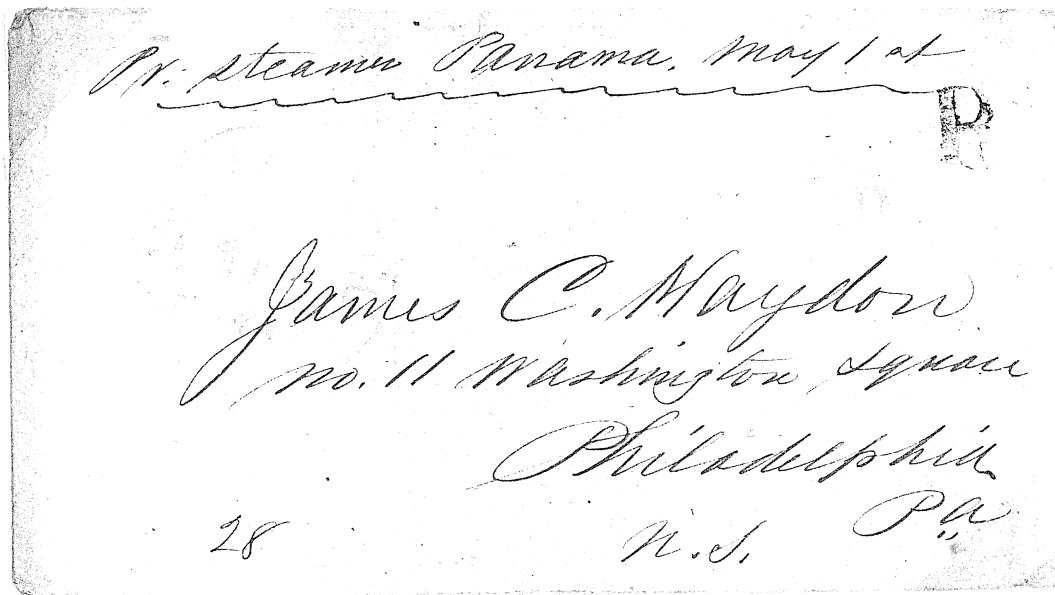 Pr. steamer Panama, May 1 st
P
James C. Haydon
No. 11 Washington Square
Philadelphia
Pa
28 U.S.